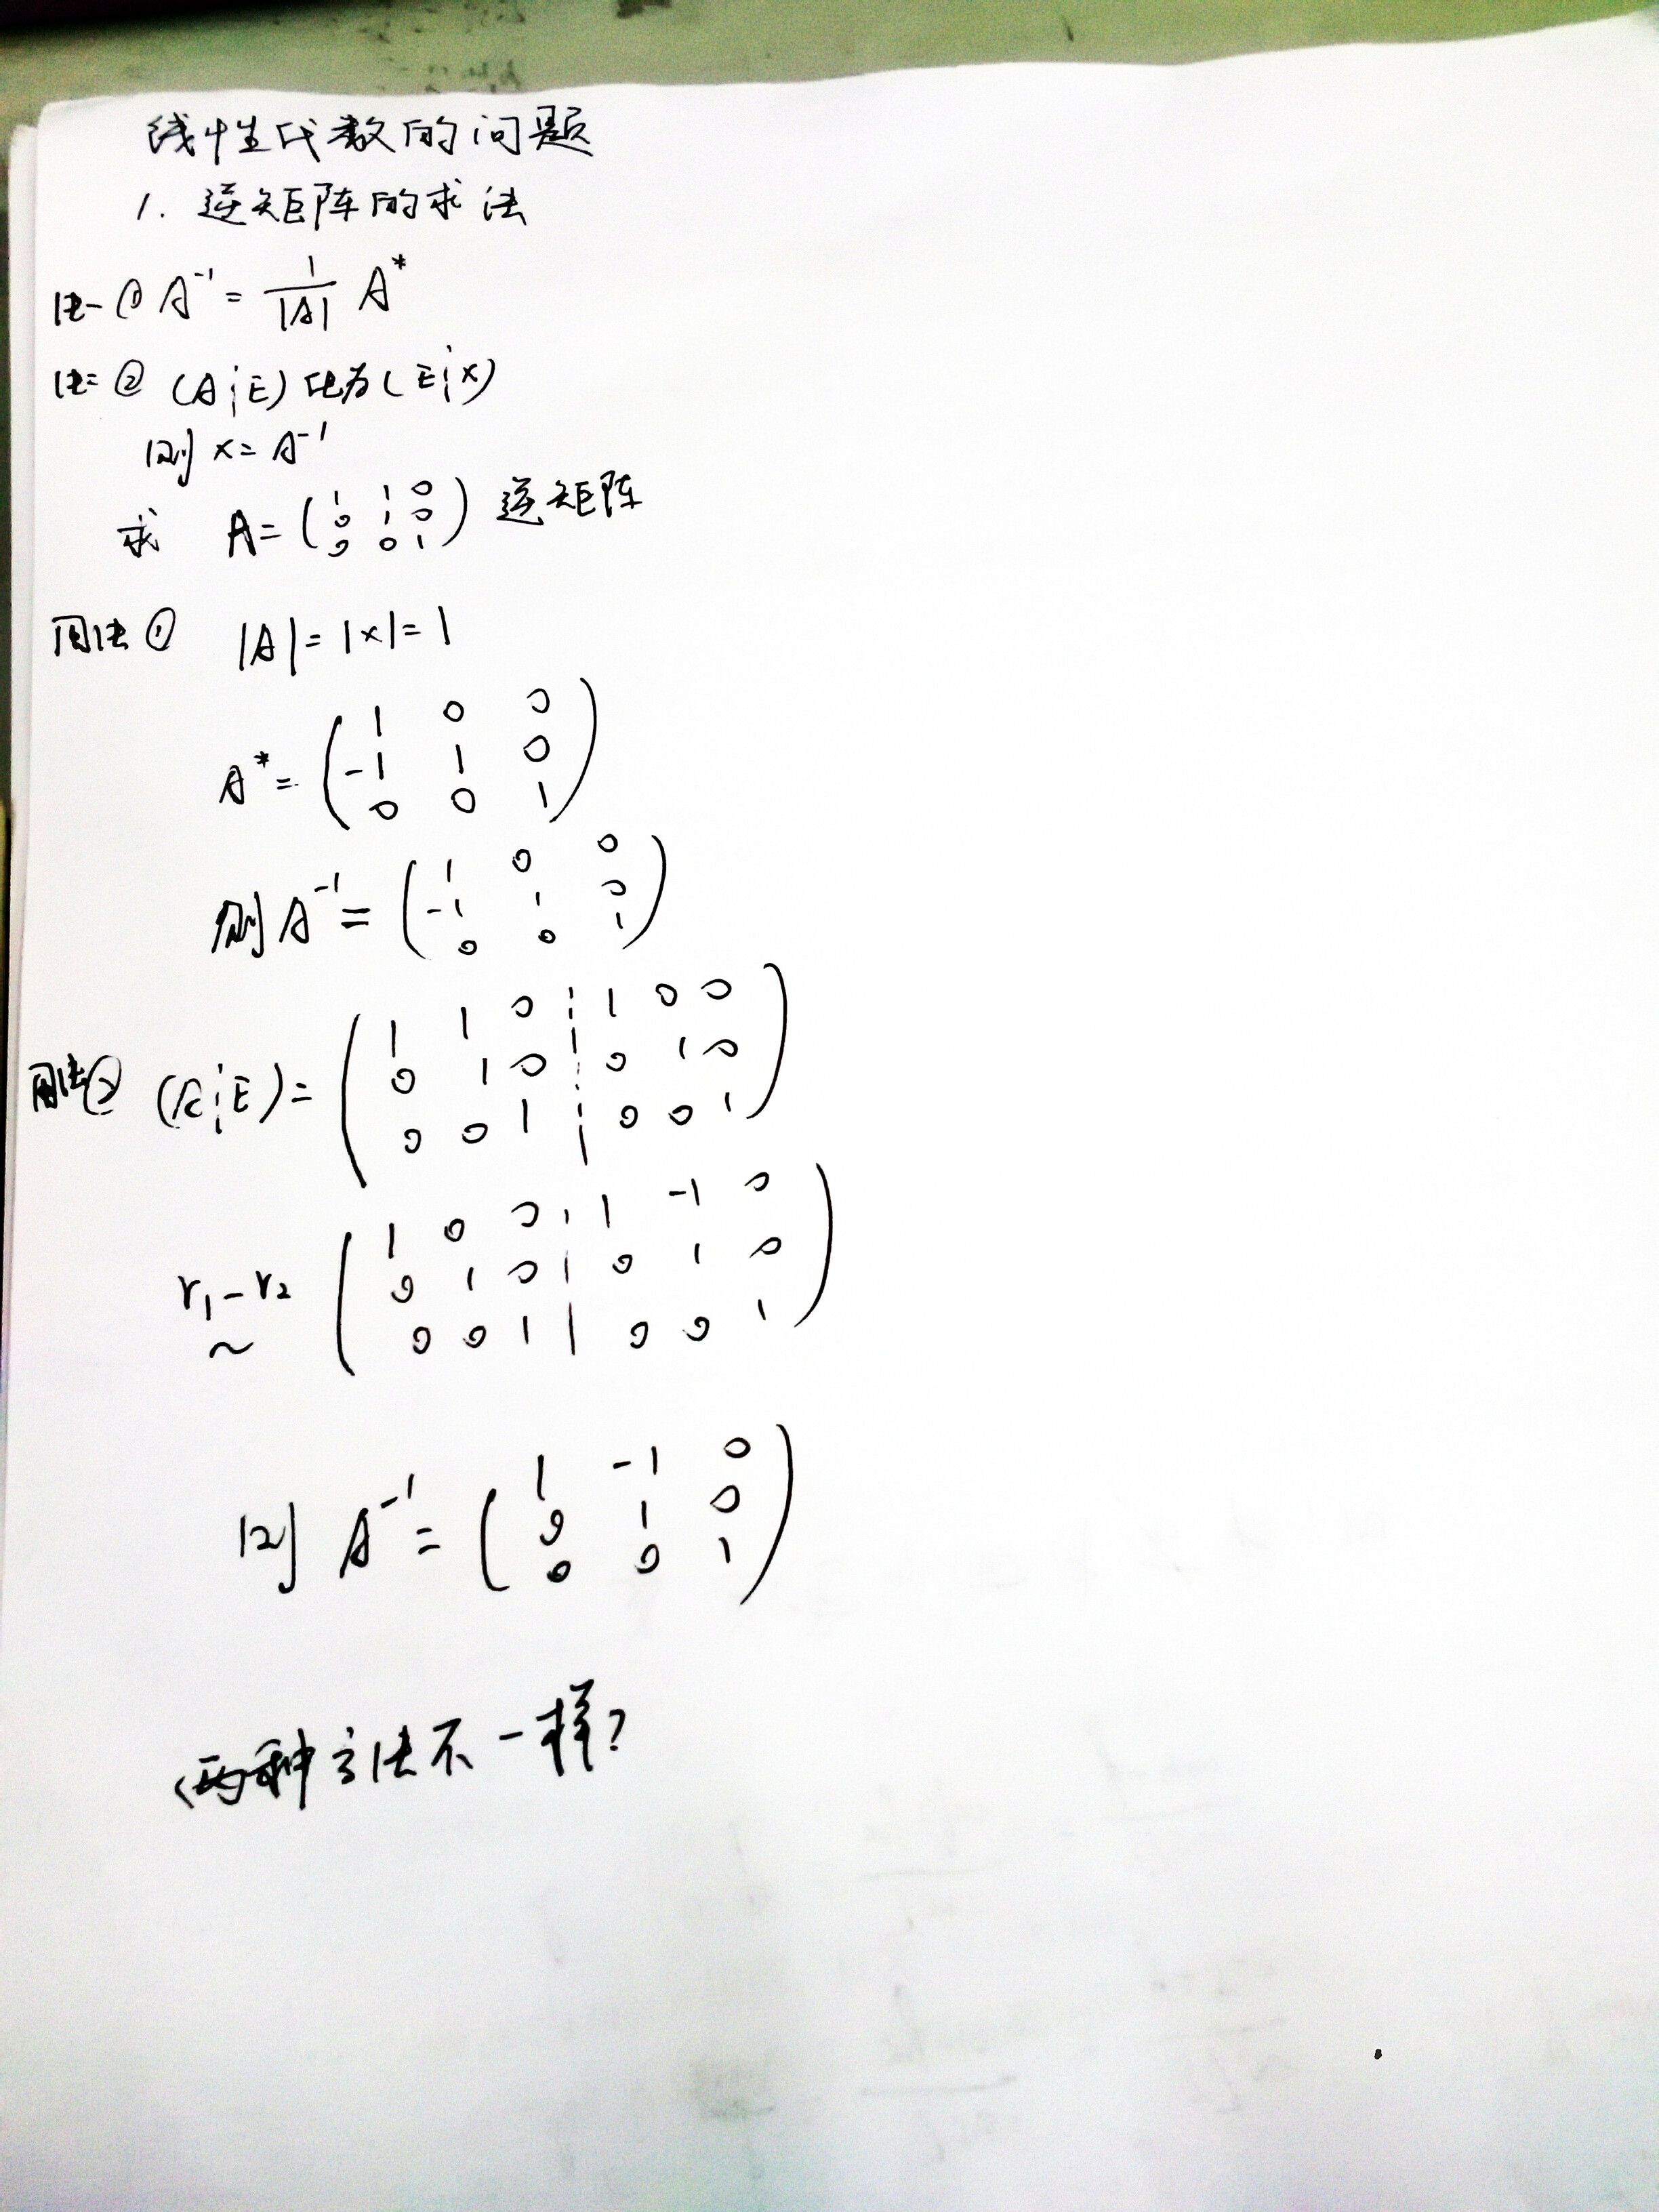 线性代数的问题
1. 逆矩阵的求法
法一 ① A⁻¹ = 1/|A| A*
法二 ② (A¦E) 化为 (E¦x)
则 x = A⁻¹
求 A = ( 1 1 0
0 1 0
0 0 1 ) 逆矩阵
用法① |A| = 1×1 = 1
A* = ( 1 0 0
-1 1 0
0 0 1 )
则 A⁻¹ = ( 1 0 0
-1 1 0
0 0 1 )
用法② (A¦E) = ( 1 1 0 ¦ 1 0 0
0 1 0 ¦ 0 1 0
0 0 1 ¦ 0 0 1 )
r₁-r₂ ~ ( 1 0 0 ¦ 1 -1 0
0 1 0 ¦ 0 1 0
0 0 1 ¦ 0 0 1 )
则 A⁻¹ = ( 1 -1 0
0 1 0
0 0 1 )
两种方法不一样?